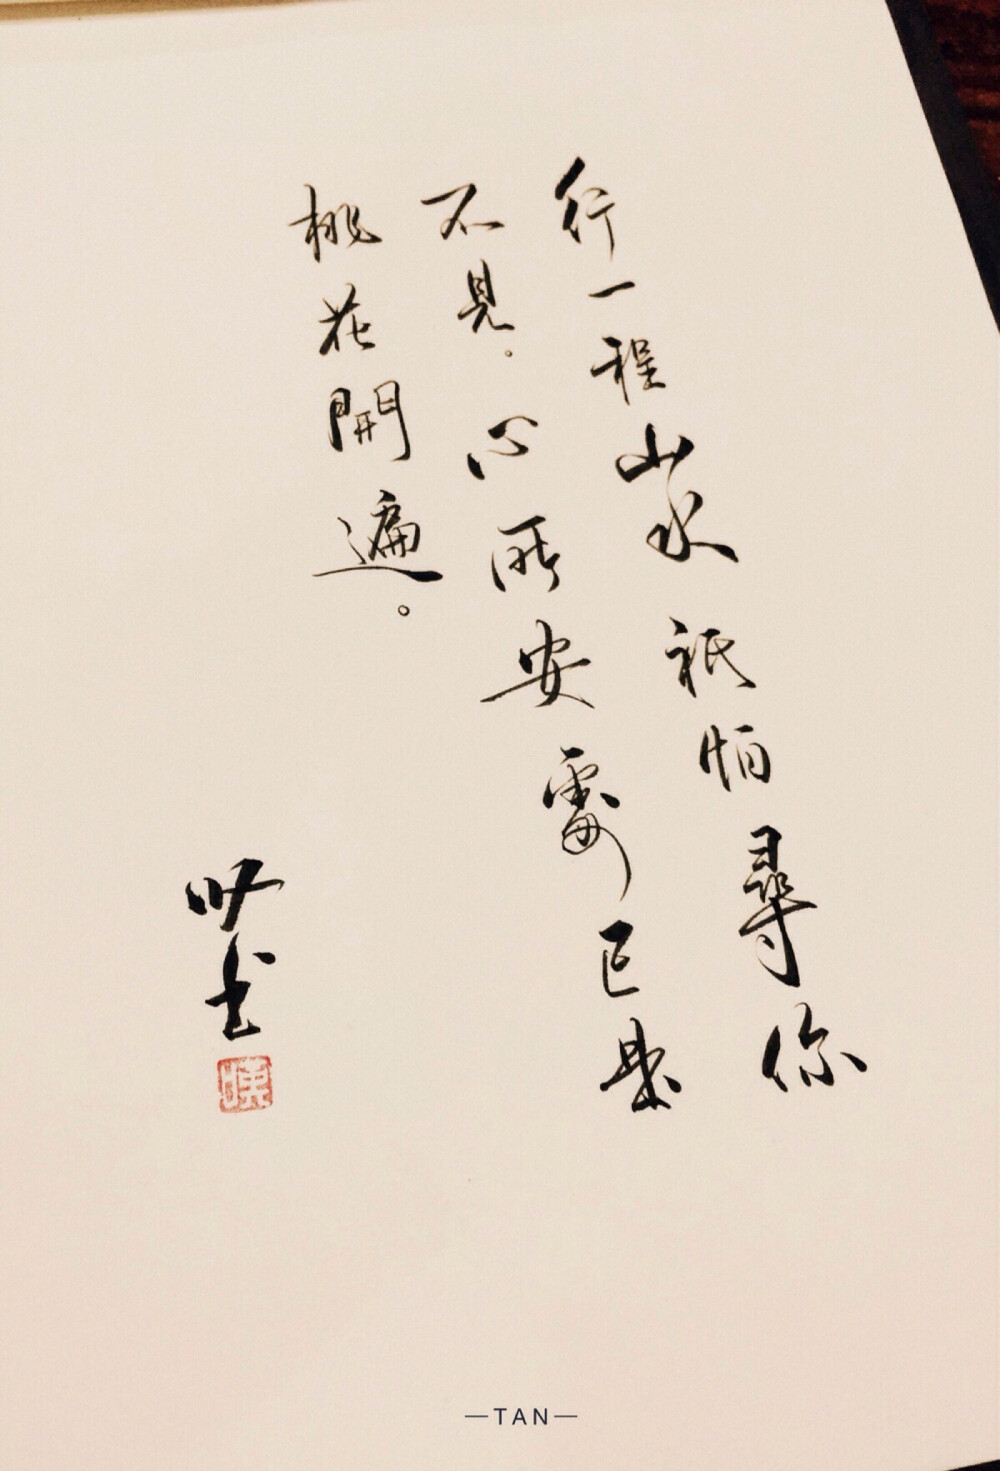 行一程山水祇怕尋你
不見。心所安處已是
桃花開遍。
書
—TAN—